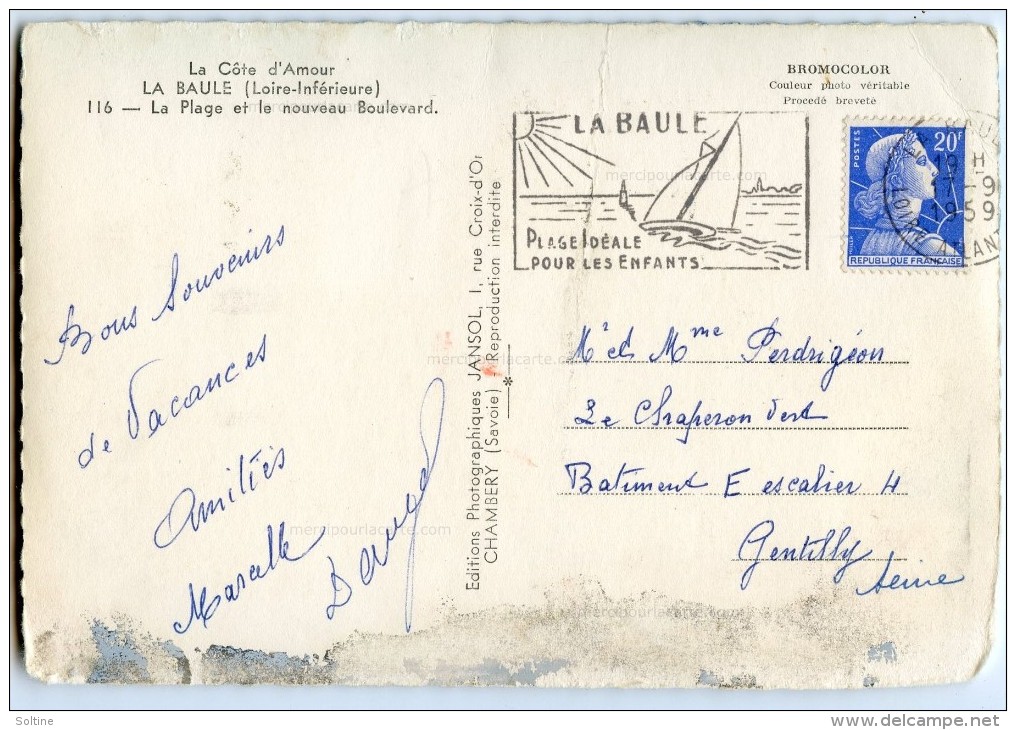 La Côte d'Amour
LA BAULE (Loire-Inférieure)
116 — La Plage et le nouveau Boulevard.
BROMOCOLOR
Couleur photo véritable
Procedé breveté
LA BAULE
PLAGE IDÉALE
POUR LES ENFANTS
POSTES
20F
REPUBLIQUE FRANÇAISE
19 H
17-9
1959
Bons Souvenirs
de Vacances
Amitiés
Marcelle
Editions Photographiques JANSOL, 1, rue Croix-d'Or
CHAMBERY (Savoie) * Reproduction interdite
Mr et Mme Perdrigéon
Le Chaperon Vert
Batiment E escalier 4
Gentilly
Seine
mercipourlacarte.com
mercipourlacarte.com
mercipourlacarte.com
mercipourlacarte.com
mercipourlacarte.com
Soltine
delcampe.net